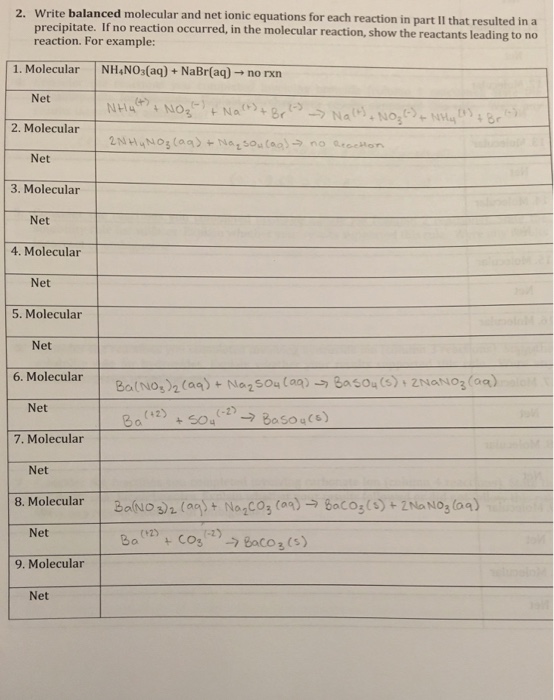 2. Write balanced molecular and net ionic equations for each reaction in part II that resulted in a
precipitate. If no reaction occurred, in the molecular reaction, show the reactants leading to no
reaction. For example:
1. Molecular NH₄NO₃(aq) + NaBr(aq) → no rxn
Net NH₄⁽⁺⁾ + NO₃⁽⁻⁾ + Na⁽⁺⁾ + Br⁽⁻⁾ → Na⁽⁺⁾ + NO₃⁽⁻⁾ + NH₄⁽⁺⁾ + Br⁽⁻⁾
2. Molecular 2NH₄NO₃(aq) + Na₂SO₄(aq) → no reaction
Net
3. Molecular
Net
4. Molecular
Net
5. Molecular
Net
6. Molecular Ba(NO₃)₂(aq) + Na₂SO₄(aq) → BaSO₄(s) + 2NaNO₃(aq)
Net Ba⁽⁺²⁾ + SO₄⁽⁻²⁾ → BaSO₄(s)
7. Molecular
Net
8. Molecular Ba(NO₃)₂(aq) + Na₂CO₃(aq) → BaCO₃(s) + 2NaNO₃(aq)
Net Ba⁽⁺²⁾ + CO₃⁽⁻²⁾ → BaCO₃(s)
9. Molecular
Net